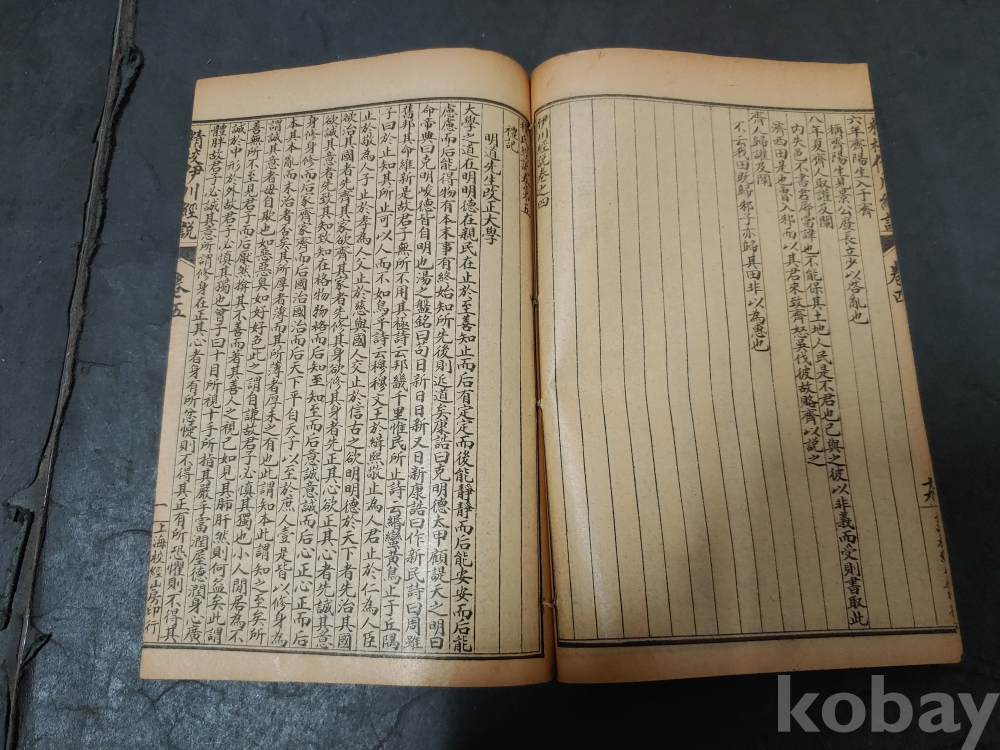 六年齊陽生入于齊
稱齊陽生見景公廢長立少以啓亂也
八年夏齊人取讙及闡
內失邑不書君辱當諱也不能保其土地人民是不君也已與之彼以非義而受則書取此
濟西田是也魯入邾而以其君來致齊怒吳伐彼故賂齊以說之
齊人歸讙及闡
不云我田既歸邾子亦歸其田非以為惠也
伊川經說卷之四
卷四
十九
禮記
明道先生改正大學
大學之道在明明德在親民在止於至善知止而后有定定而後能靜靜而后能安安而后能
慮慮而后能得物有本末事有終始知所先後則近道矣康誥曰克明德太甲曰顧諟天之明
命帝典曰克明峻德皆自明也湯之盤銘曰苟日新日日新又日新康誥曰作新民詩曰周雖
舊邦其命維新是故君子無所不用其極詩云邦畿千里惟民所止詩云緡蠻黃鳥止于丘隅
子曰於止知其所止可以人而不如鳥乎詩云穆穆文王於緝熙敬止為人君止於仁為人臣
止於敬為人子止於孝為人父止於慈與國人交止於信古之欲明明德於天下者先治其國
欲治其國者先齊其家欲齊其家者先修其身欲修其身者先正其心欲正其心者先誠其意
欲誠其意者先致其知致知在格物物格而后知至知至而后意誠意誠而后心正心正而后
身修身修而后家齊家齊而后國治國治而后天下平自天子以至於庶人壹是皆以修身為
本其本亂而末治者否矣其所厚者薄而其所薄者厚未之有也此謂知本此謂知之至矣所
謂誠其意者毋自欺也如惡惡臭如好好色此之謂自謙故君子必慎其獨也小人閒居為不
善無所不至見君子而后厭然揜其不善而著其善人之視己如見其肺肝然則何益矣此謂
誠於中形於外故君子必慎其獨也曾子曰十目所視十手所指其嚴乎富潤屋德潤身心廣
體胖故君子必誠其意所謂修身在正其心者身有所忿懥則不得其正有所恐懼則不得其
精校伊川經說
卷五
一
上海校經山房印行
kobay